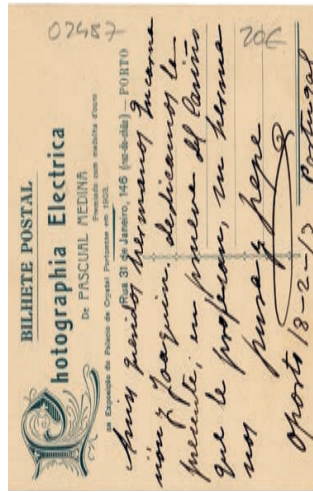 02487
20€
BILHETE POSTAL
Photographia Electrica
De PASCUAL MEDINA
Premiado com medalha d'ouro
na Exposição do Palacio de Crystal Portuense em 1903.
(Rua 31 de Janeiro, 146 (rez-do-chão) — PORTO
A mis queridos hermanos Encarna
ción y Joaquin, dedicamos la
presente, en prueva del Cariño
que le profesan, su herma
nos
pura y pepe
Oporto 18-2-13 Portugal